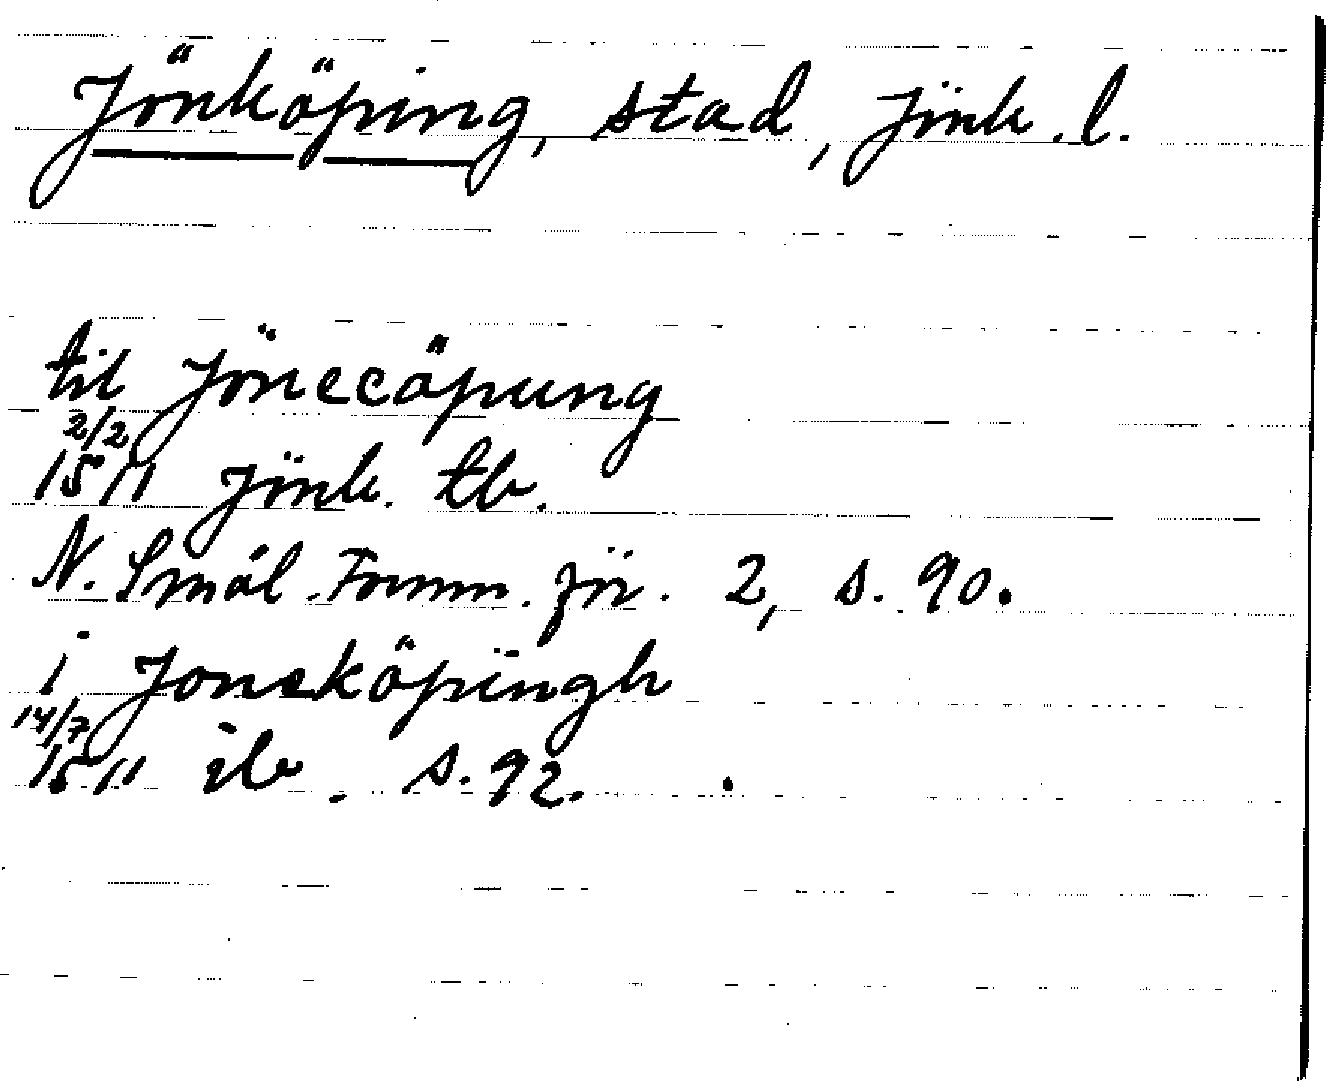 Jönköping, stad, Jönk. l.
til Jönecöpung
2/2
1511 Jönk. tb.
N. Smål. Fornm. för. 2, s. 90.
i Joneköpingh
14/7
1511 ib. s. 92.